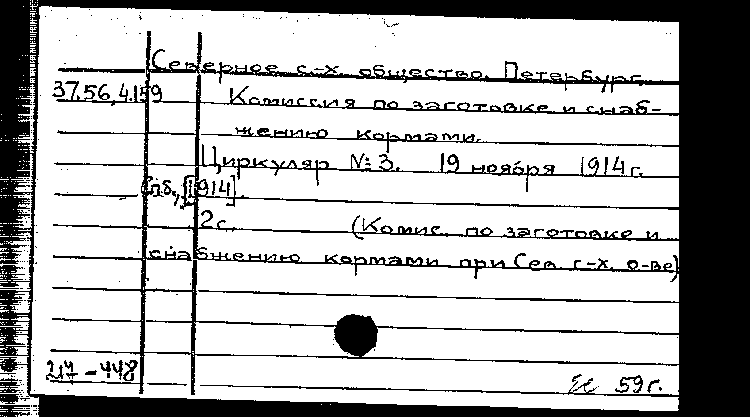 Северное с.-х. общество. Петербург.
37.56.4.159 Комиссия по заготовке и снаб-
жению кормами.
Циркуляр № 3. 19 ноября 1914 г.
Спб., [1914].
2 с. (Комис. по заготовке и
снабжению кормами при Сев. с-х. о-ве)
217 - 448 59 г.